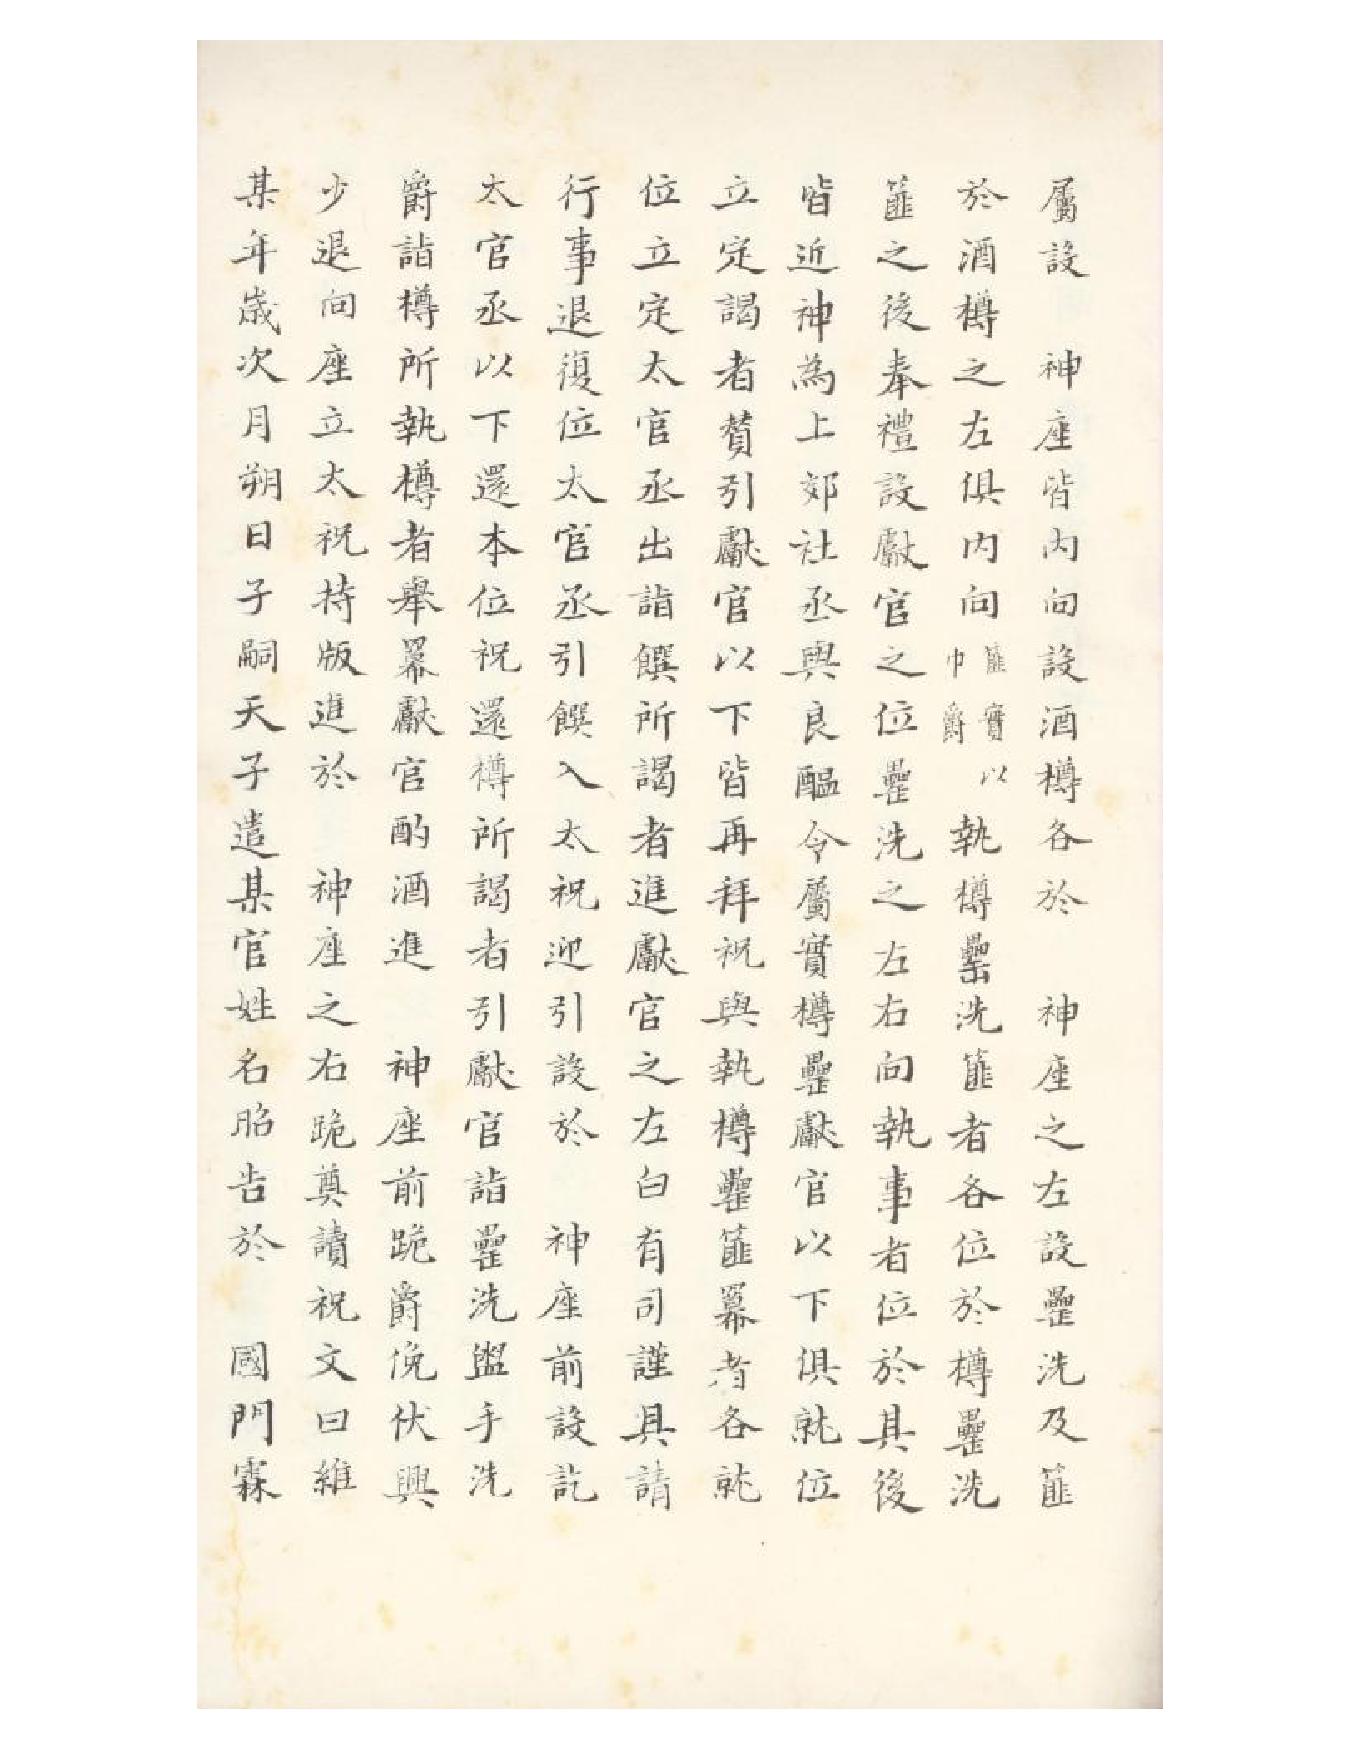 屬設　神座皆內向設酒樽各於　神座之左設罍洗及篚
於酒樽之左俱內向篚實以巾爵執樽罍洗篚者各位於樽罍洗
篚之後奉禮設獻官之位罍洗之左右向執事者位於其後
皆近神為上郊社丞與良醞令屬實樽罍獻官以下俱就位
立定謁者贊引獻官以下皆再拜祝與執樽罍篚羃者各就
位立定太官丞出詣饌所謁者進獻官之左白有司謹具請
行事退復位太官丞引饌入太祝迎引設於　神座前設訖
太官丞以下還本位祝還樽所謁者引獻官詣罍洗盥手洗
爵詣樽所執樽者舉羃獻官酌酒進　神座前跪爵俛伏興
少退向座立太祝持版進於　神座之右跪奠讀祝文曰維
某年歲次月朔日子嗣天子遣某官姓名昭告於　國門霖